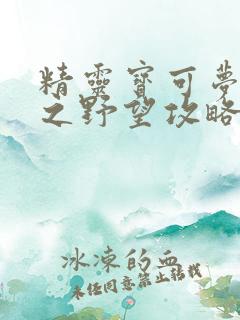 精靈寶可夢
之野望攻略
冰凍的血
未任同意禁止轉載